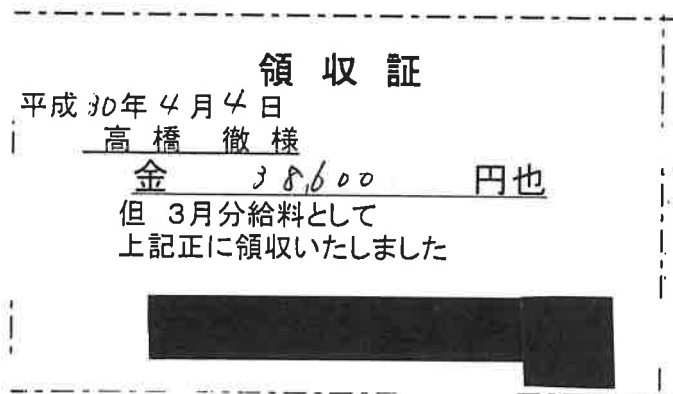 領収証
平成30年4月4日
高橋 徹 様
金 38,600 円也
但 3月分給料として
上記正に領収いたしました